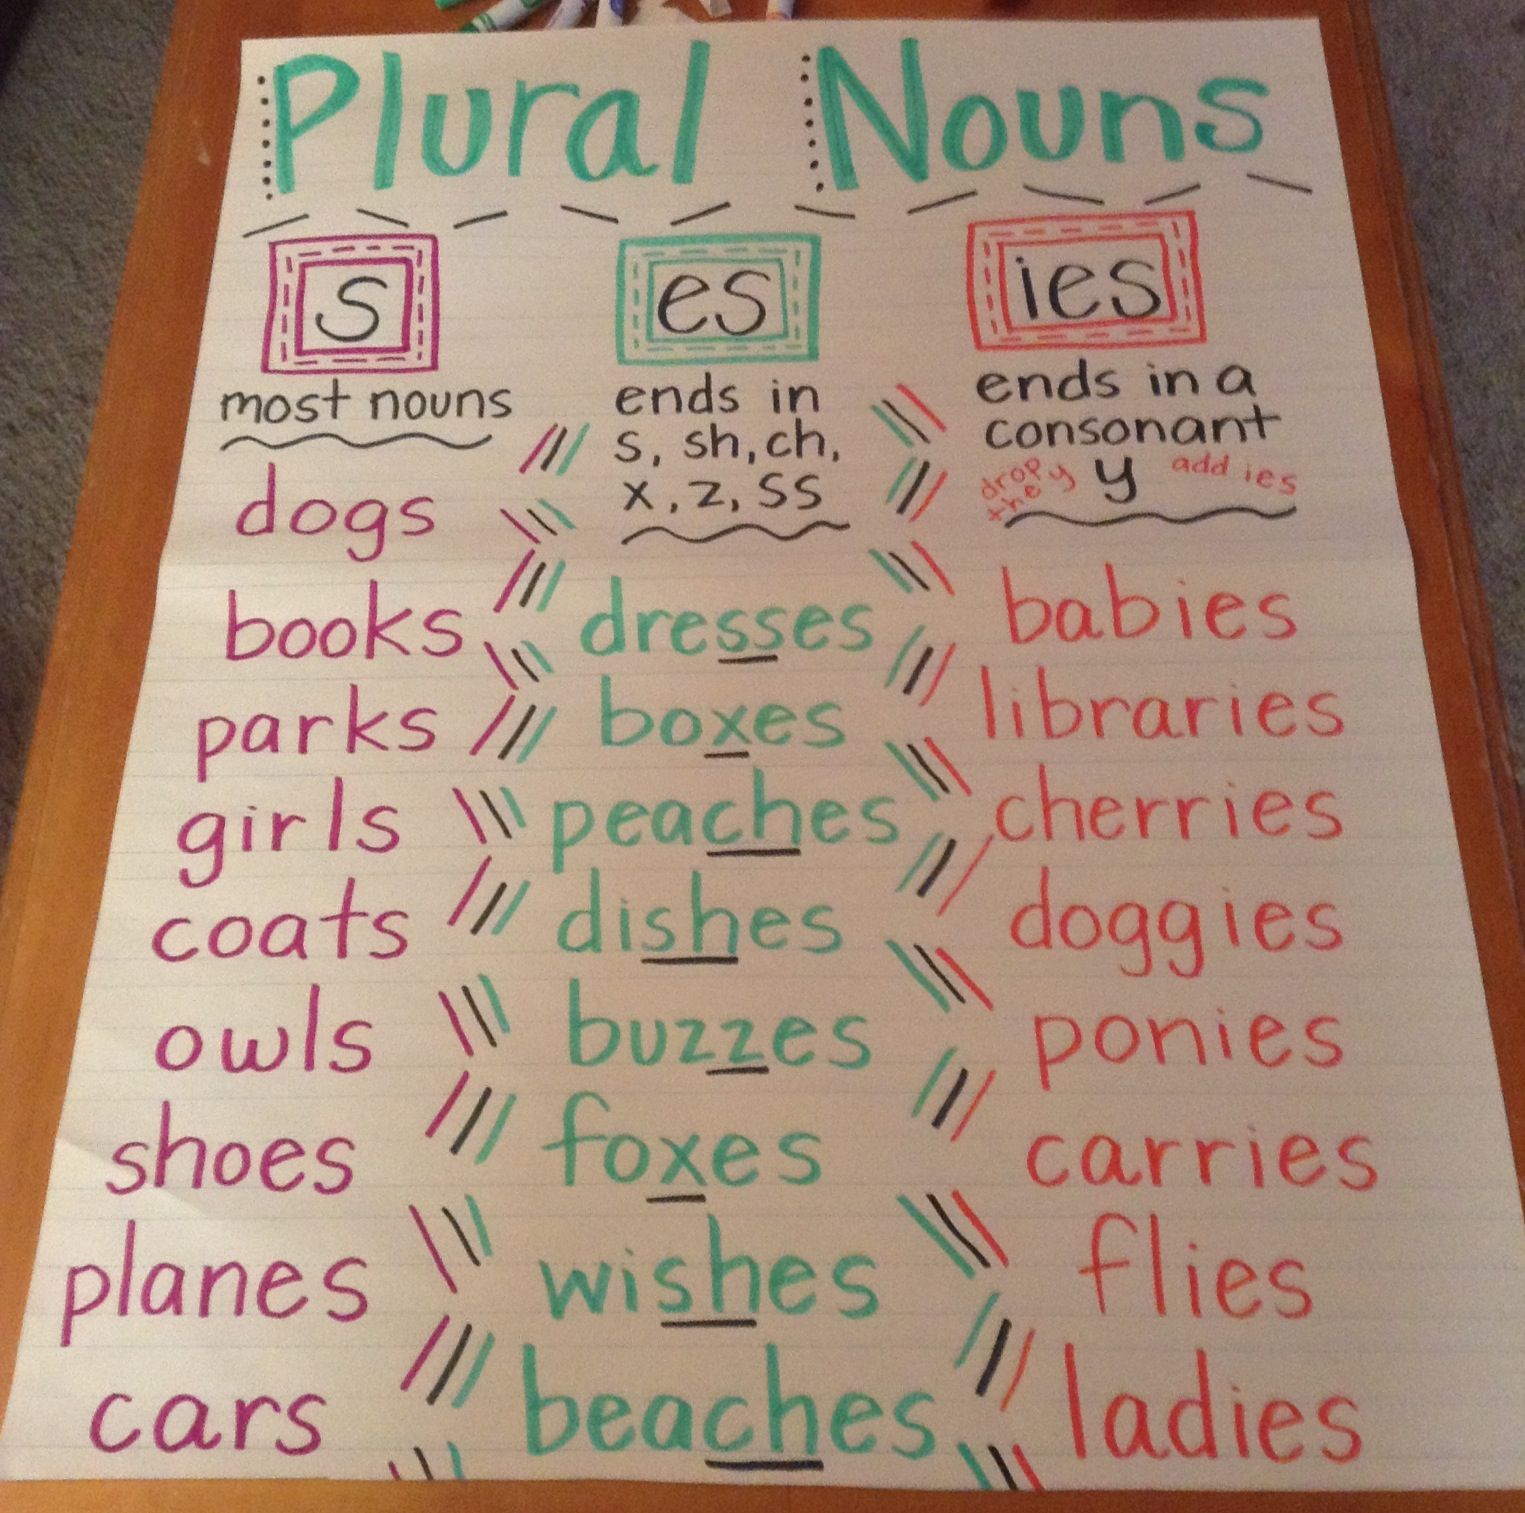 Plural Nouns
s
most nouns
dogs
books
parks
girls
coats
owls
shoes
planes
cars
es
ends in
s, sh, ch,
x, z, ss
dresses
boxes
peaches
dishes
buzzes
foxes
wishes
beaches
ies
ends in a
consonant
drop the y y add ies
babies
libraries
cherries
doggies
ponies
carries
flies
ladies